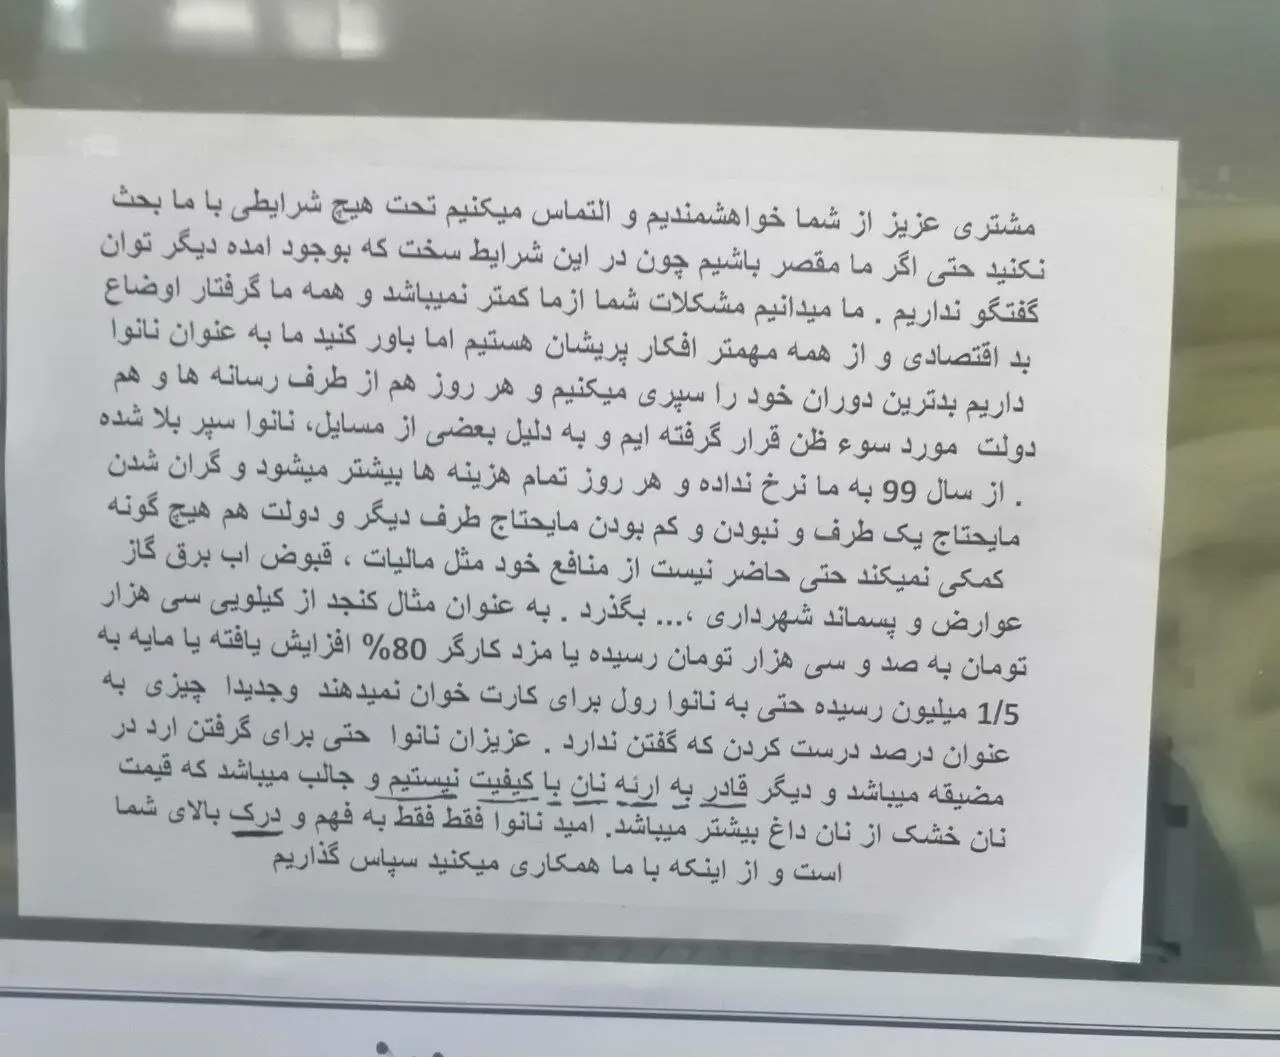 مشتری عزیز از شما خواهشمندیم و التماس میکنیم تحت هیچ شرایطی با ما بحث
نکنید حتی اگر ما مقصر باشیم چون در این شرایط سخت که بوجود امده دیگر توان
گفتگو نداریم . ما میدانیم مشکلات شما ازما کمتر نمیباشد و همه ما گرفتار اوضاع
بد اقتصادی و از همه مهمتر افکار پریشان هستیم اما باور کنید ما به عنوان نانوا
داریم بدترین دوران خود را سپری میکنیم و هر روز هم از طرف رسانه ها و هم
دولت مورد سوء ظن قرار گرفته ایم و به دلیل بعضی از مسایل، نانوا سپر بلا شده
. از سال 99 به ما نرخ نداده و هر روز تمام هزینه ها بیشتر میشود و گران شدن
مایحتاج یک طرف و نبودن و کم بودن مایحتاج طرف دیگر و دولت هم هیچ گونه
کمکی نمیکند حتی حاضر نیست از منافع خود مثل مالیات ، قبوض اب برق گاز
عوارض و پسماند شهرداری ،... بگذرد . به عنوان مثال کنجد از کیلویی سی هزار
تومان به صد و سی هزار تومان رسیده یا مزد کارگر 80% افزایش یافته یا مایه به
1/5 میلیون رسیده حتی به نانوا رول برای کارت خوان نمیدهند وجدیدا چیزی به
عنوان درصد درست کردن که گفتن ندارد . عزیزان نانوا حتی برای گرفتن ارد در
مضیقه میباشد و دیگر قادر به ارئه نان با کیفیت نیستیم و جالب میباشد که قیمت
نان خشک از نان داغ بیشتر میباشد. امید نانوا فقط فقط به فهم و درک بالای شما
است و از اینکه با ما همکاری میکنید سپاس گذاریم